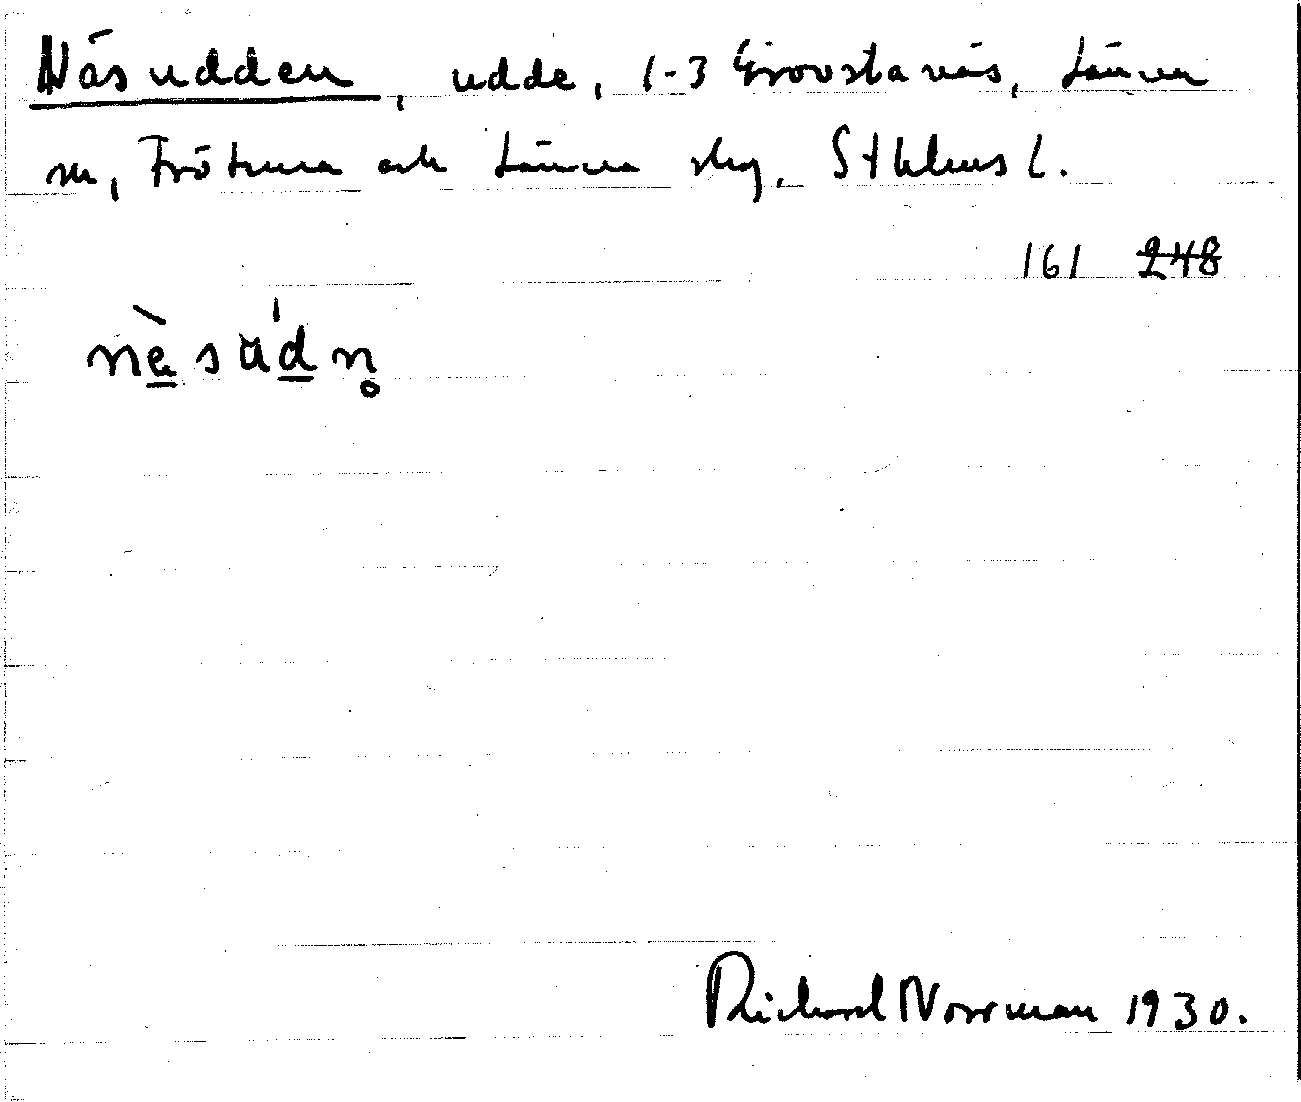 Näsudden, udde, 1-3 Grovstanäs, Länna
sn, Frötuna och Länna skg, Sthlms l.
161 248
nèsŭ'dn̥
Richard Norrman 1930.